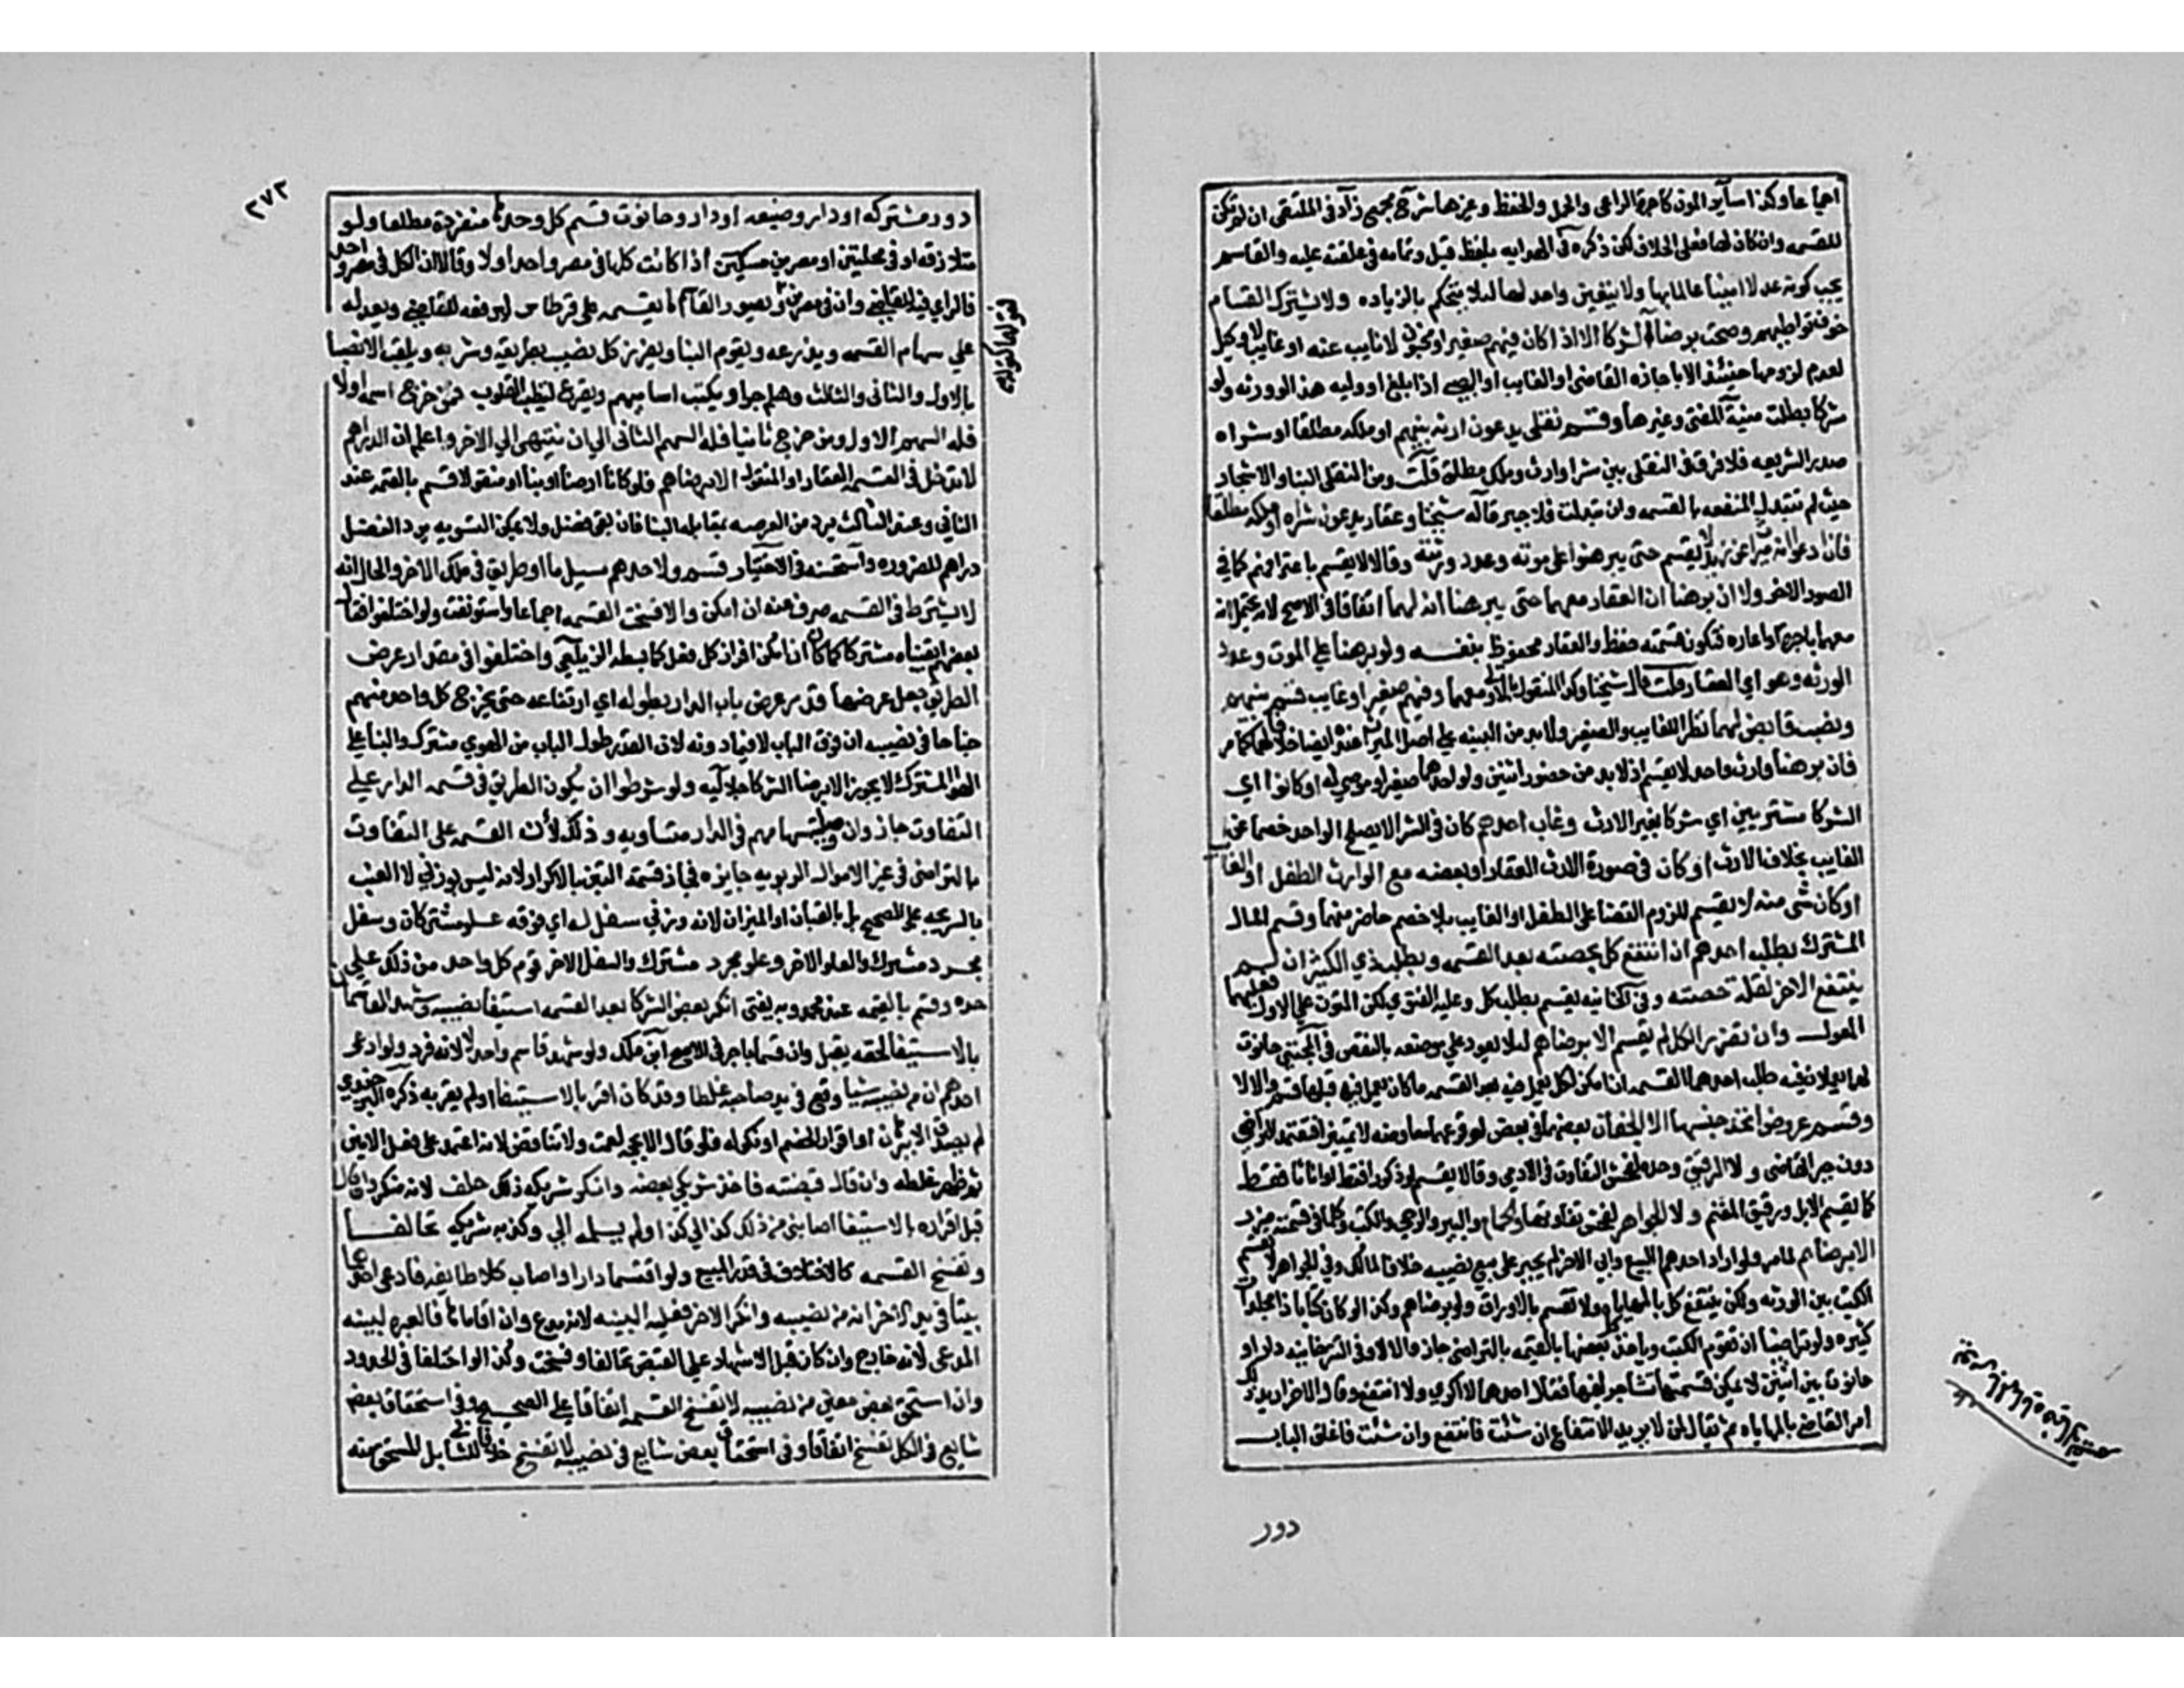 اجماعا وكذا ساير المون كاجرة الراعي والحمل والحفظ وغيرها شرح مجمع زاد في الملتقى ان لم تكن
للقسمه وان كان لها فعلى الخلاف لكن ذكره في الهدايه بلفظ قيل وتمامه في علقته عليه والقاسم
يجب كونه عدلا امينا عالما بها ولا يتعين واحد لها لئلا يتحكم بالزياده ولا يشترك القسام
خوف تواطيهم وصحت برضا الشركا الا اذا كان فيهم صغير او مجنون لا نايب عنه او غايب لا وكيل
لعدم لزومها حينئذ الا باجازه القاضي او الغايب او الصبي اذا بلغ او وليه هذا لو ورثه ولو
شركا بطلت منية المفتي وغيرها وقسم نقلي يدعون ارثه بينهم او ملكه مطلقا او شراه
صدر الشريعه فلا فرق في النقلي بين شرا وارث وملك مطلق قلت ومن النقلي البنا والاشجار
حيث لم تتبدل المنفعه بالقسمه وان تبدلت فلا جبر قاله شيخنا وعقار يدعون شراه او ملكه مطلقا
فان ادعوا انه ميراث عن زيد لا يقسم حتى يبرهنوا على موته وعدد ورثته وقالا يقسم باعترافهم كما في
الصور الاخر ولا ان برهنا ان العقار معهما حتى يبرهنا انه لهما اتفاقا في الاصح لانه يحتمل انه
معهما باجره او اعاره فتكون قسمته حفظ والعقار محفوظ بنفسه ولو برهنا على الموت وعدد
الورثه وهو اي العقار قلت قال شيخنا وكذا المنقول بالاولى معهما وفيهم صغير او غايب قسم بينهم
ونصب قابض لهما نظرا للغايب والصغير ولا بد من البينه على اصل الميراث عنده ايضا خلافا لهما كما مر
فان برهن وارث واحد لا يقسم اذ لا بد من حضور اثنين ولو احدهما صغير او موصي له او كانوا اي
الشركا مشتريين اي شركا بغير الارث وغاب احدهم كان في الشرا لا يصلح الواحد خصما عن
الغايب بخلاف الارث او كان في صورة الارث العقار او بعضه مع الوارث الطفل او الغا
او كان شي منه لا يقسم للزوم القضا على الطفل او الغايب بلا خصم حاضر عنهما وقسم المال
المشترك بطلب احدهم ان انتفع كل بحصته بعد القسمه وبطلب ذي الكثير ان لم
ينتفع الاخر لقلة حصته وفي الخانيه يقسم بطلب كل وعليه الفتوى لكن المتون على الاول فعليها
المعول وان تضرر الكل لم يقسم الا برضاهم لئلا يعود على موضوعه بالنقض في المجتبى حانوت
لهما يعملان فيه طلب احدهما القسمه ان امكن لكل يعمل فيه بعد القسمه ما كان يعمل فيه قبلها قسم والا لا
وقسم عروض اتحد جنسها لا الجنسان بعضهما في بعض لوقوعها معاوضه لا تمييزا فتعتمد التراضي
دون جبر القاضي ولا الرقيق وحده لفحش التفاوت في الادمي وقالا يقسم لو ذكورا فقط او اناثا فقط
كما يقسم الابل ورقيق المغنم ولا الجواهر لفحش تفاوتها والحمام والبير والرحى والكتب وكل ما في قسمته ضرر
الا برضاهم لما مر ولو اراد احدهم البيع وابى الاخر لم يجبر على بيع نصيبه خلافا لمالك وفي الجواهر لا تقسم
الكتب بين الورثه ولكن ينتفع كل بالمهاياه ولا تقسم بالاوراق ولو برضاهم وكذا لو كان كتابا ذا مجلدات
كثيره ولو تراضيا ان تقوم الكتب وياخذ كل بعضها بالقيمه بالتراضي جاز والا لا وفي التترخانيه دار او
حانوت بين اثنين لا يمكن قسمتها تشاجرا فيها فقال احدهما لا اكري ولا انتفع وقال الاخر اريد ذلك
امر القاضي بالمهاياه ثم يقال لمن لا يريد الانتفاع ان شئت فانتفع وان شئت فاغلق الباب
دور
٢٧٢
دور مشتركه او دار وضيعه او دار وحانوت قسم كل وحدها منفردة مطلقا ولو
متلازقه او في محلتين او مصرين مسكين اذا كانت كلها في مصر واحد او لا وقالا ان الكل في مصر واحد
فالراي فيه للقاضي وان في مصرين ويصور القاسم ما يقسمه على قرطاس ليرفعه للقاضي ويعدله
على سهام القسمه ويذرعه ويقوم البنا ويفرز كل نصيب بطريقه وشربه ويلقب الانصبا
بالاول والثاني والثالث وهلم جرا ويكتب اساميهم ويقرع لتطيب القلوب فمن خرج اسمه اولا
فله السهم الاول ومن خرج ثانيا فله السهم الثاني الى ان ينتهي الى الاخر واعلم ان الدراهم
لا تدخل في القسمه العقار او المنقول الا برضاهم فلو كان ارضا وبنا او منقولا قسم بالقيمه عند
الثاني وعند الثالث يرد من العرصه بمقابله البنا فان بقى فضل ولا يمكن التسويه يرد الفضل
دراهم للضروره واستحسنه في الاختيار قسم ولاحدهم مسيل ما او طريق في ملك الاخر والحال انه
لم يشترط في القسمه صرف عنه ان امكن والا فسخت القسمه اجماعا واستونفت ولو اختلفوا فقال
بعضهم ابقيناه مشتركا كما كان ان امكن افراز كل فعل كما بسطه الزيلعي واختلفوا في مقدار عرض
الطريق جعل عرضها قدر عرض باب الدار بطوله اي ارتفاعه حتى يخرج كل واحد منهم
جناحا في نصيبه ان فوق الباب لا فيما دونه لان القدر طول الباب من الهوي مشترك والبنا على
الهوا المشترك لا يجوز الا برضا الشركا جلاليه ولو شرطوا ان يكون الطريق في قسمه الدار على
التفاوت جاز وان سهامهم في الدار متساويه وذلك لان القسمه على التفاوت
بالتراضي في غير الاموال الربويه جايزه فجاز قسمة التبن بالاكرار لانه ليس بوزني لا العنب
بالشريجه على الصحيح بل بالقبان او الميزان لانه وزني سفل له اي فوقه علو مشتركان وسفل
مجرد مشترك والعلو لاخر وعلو مجرد مشترك والسفل لاخر قوم كل واحد من ذلك على
حده وقسم بالقيمه عند محمد وبه يفتى انكر بعض الشركا بعد القسمه استيفا نصيبه وشهد القاسمان
بالاستيفا لحقه يقبل وان قسما باجر في الاصح ابن ملك ولو شهد قاسم واحد لا لانه فرد ولو ادعى
احدهم ان من نصيبه شيا وقع في يد صاحبه غلطا وقد كان اقر بالاستيفا او لم يقر به ذكره البرجندي
لم يصدق الا ببرهان او اقرار الخصم او نكوله فلو قال لا بينه لعمت ولا تناقض لانه اعتمد على فعل الامين
ثم ظهر غلطه وان قال قبضته فاخذ شريكي بعضه وانكر شريكه ذلك حلف لانه منكر وان قال
قبل اقراره بالاستيفا اصابني من ذلك كذا الى كذا ولم يسلمه الي وكذبه شريكه تحالفا
وتفسخ القسمه كالاختلاف في قدر المبيع ولو اقتسما دارا واصاب كلا طايفه فادعى احدهما
بيتا في يد الاخر انه من نصيبه وانكر الاخر فعليه البينه لانه مدع وان اقاماها فالعبره لبينه
المدعي لانه خارج وان كان قبل الاشهاد على القبض تحالفا وفسخت وكذا لو اختلفا في الحدود
وان استحق بعض معين من نصيبه لا تفسخ القسمه اتفاقا على الصحيح وفي استحقاق بعض
شايع في الكل تفسخ اتفاقا وفي استحقاق بعض شايع في نصيبه لا تفسخ خلافا للثاني بل المستحق منه